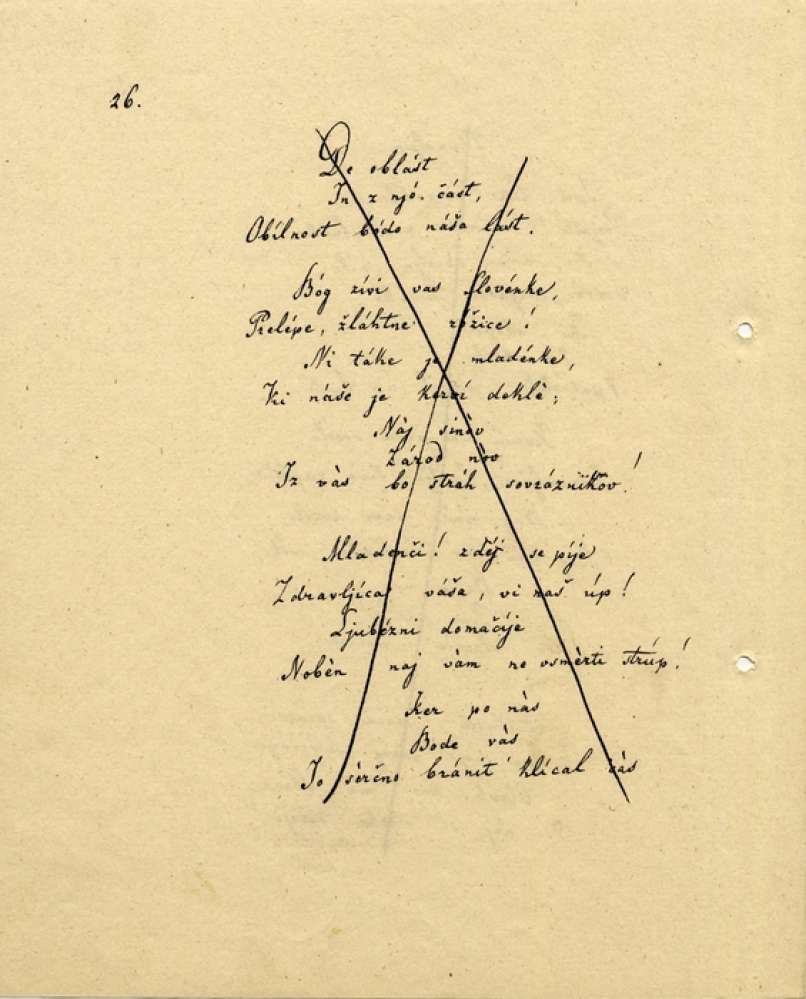 26.
De oblást
In z njó. část,
Obílnost bódo náša lást.
Bóg žívi vas Slovénke,
Prelépe, žláhtne róžice!
Ni táke je mladénke,
Ki náše je kerví deklè;
Nàj sinòv
Zárod nòv
Iz vàs bo stráh sovrážnikov!
Mladenči! zdéj se píje
Zdravljíca váša, vi naš úp!
Ljubézni domačíje
Nobèn naj vàm ne vsmèrti strúp!
Ker po nàs
Bode vàs
Jo sèrčno bránit' klícal čàs